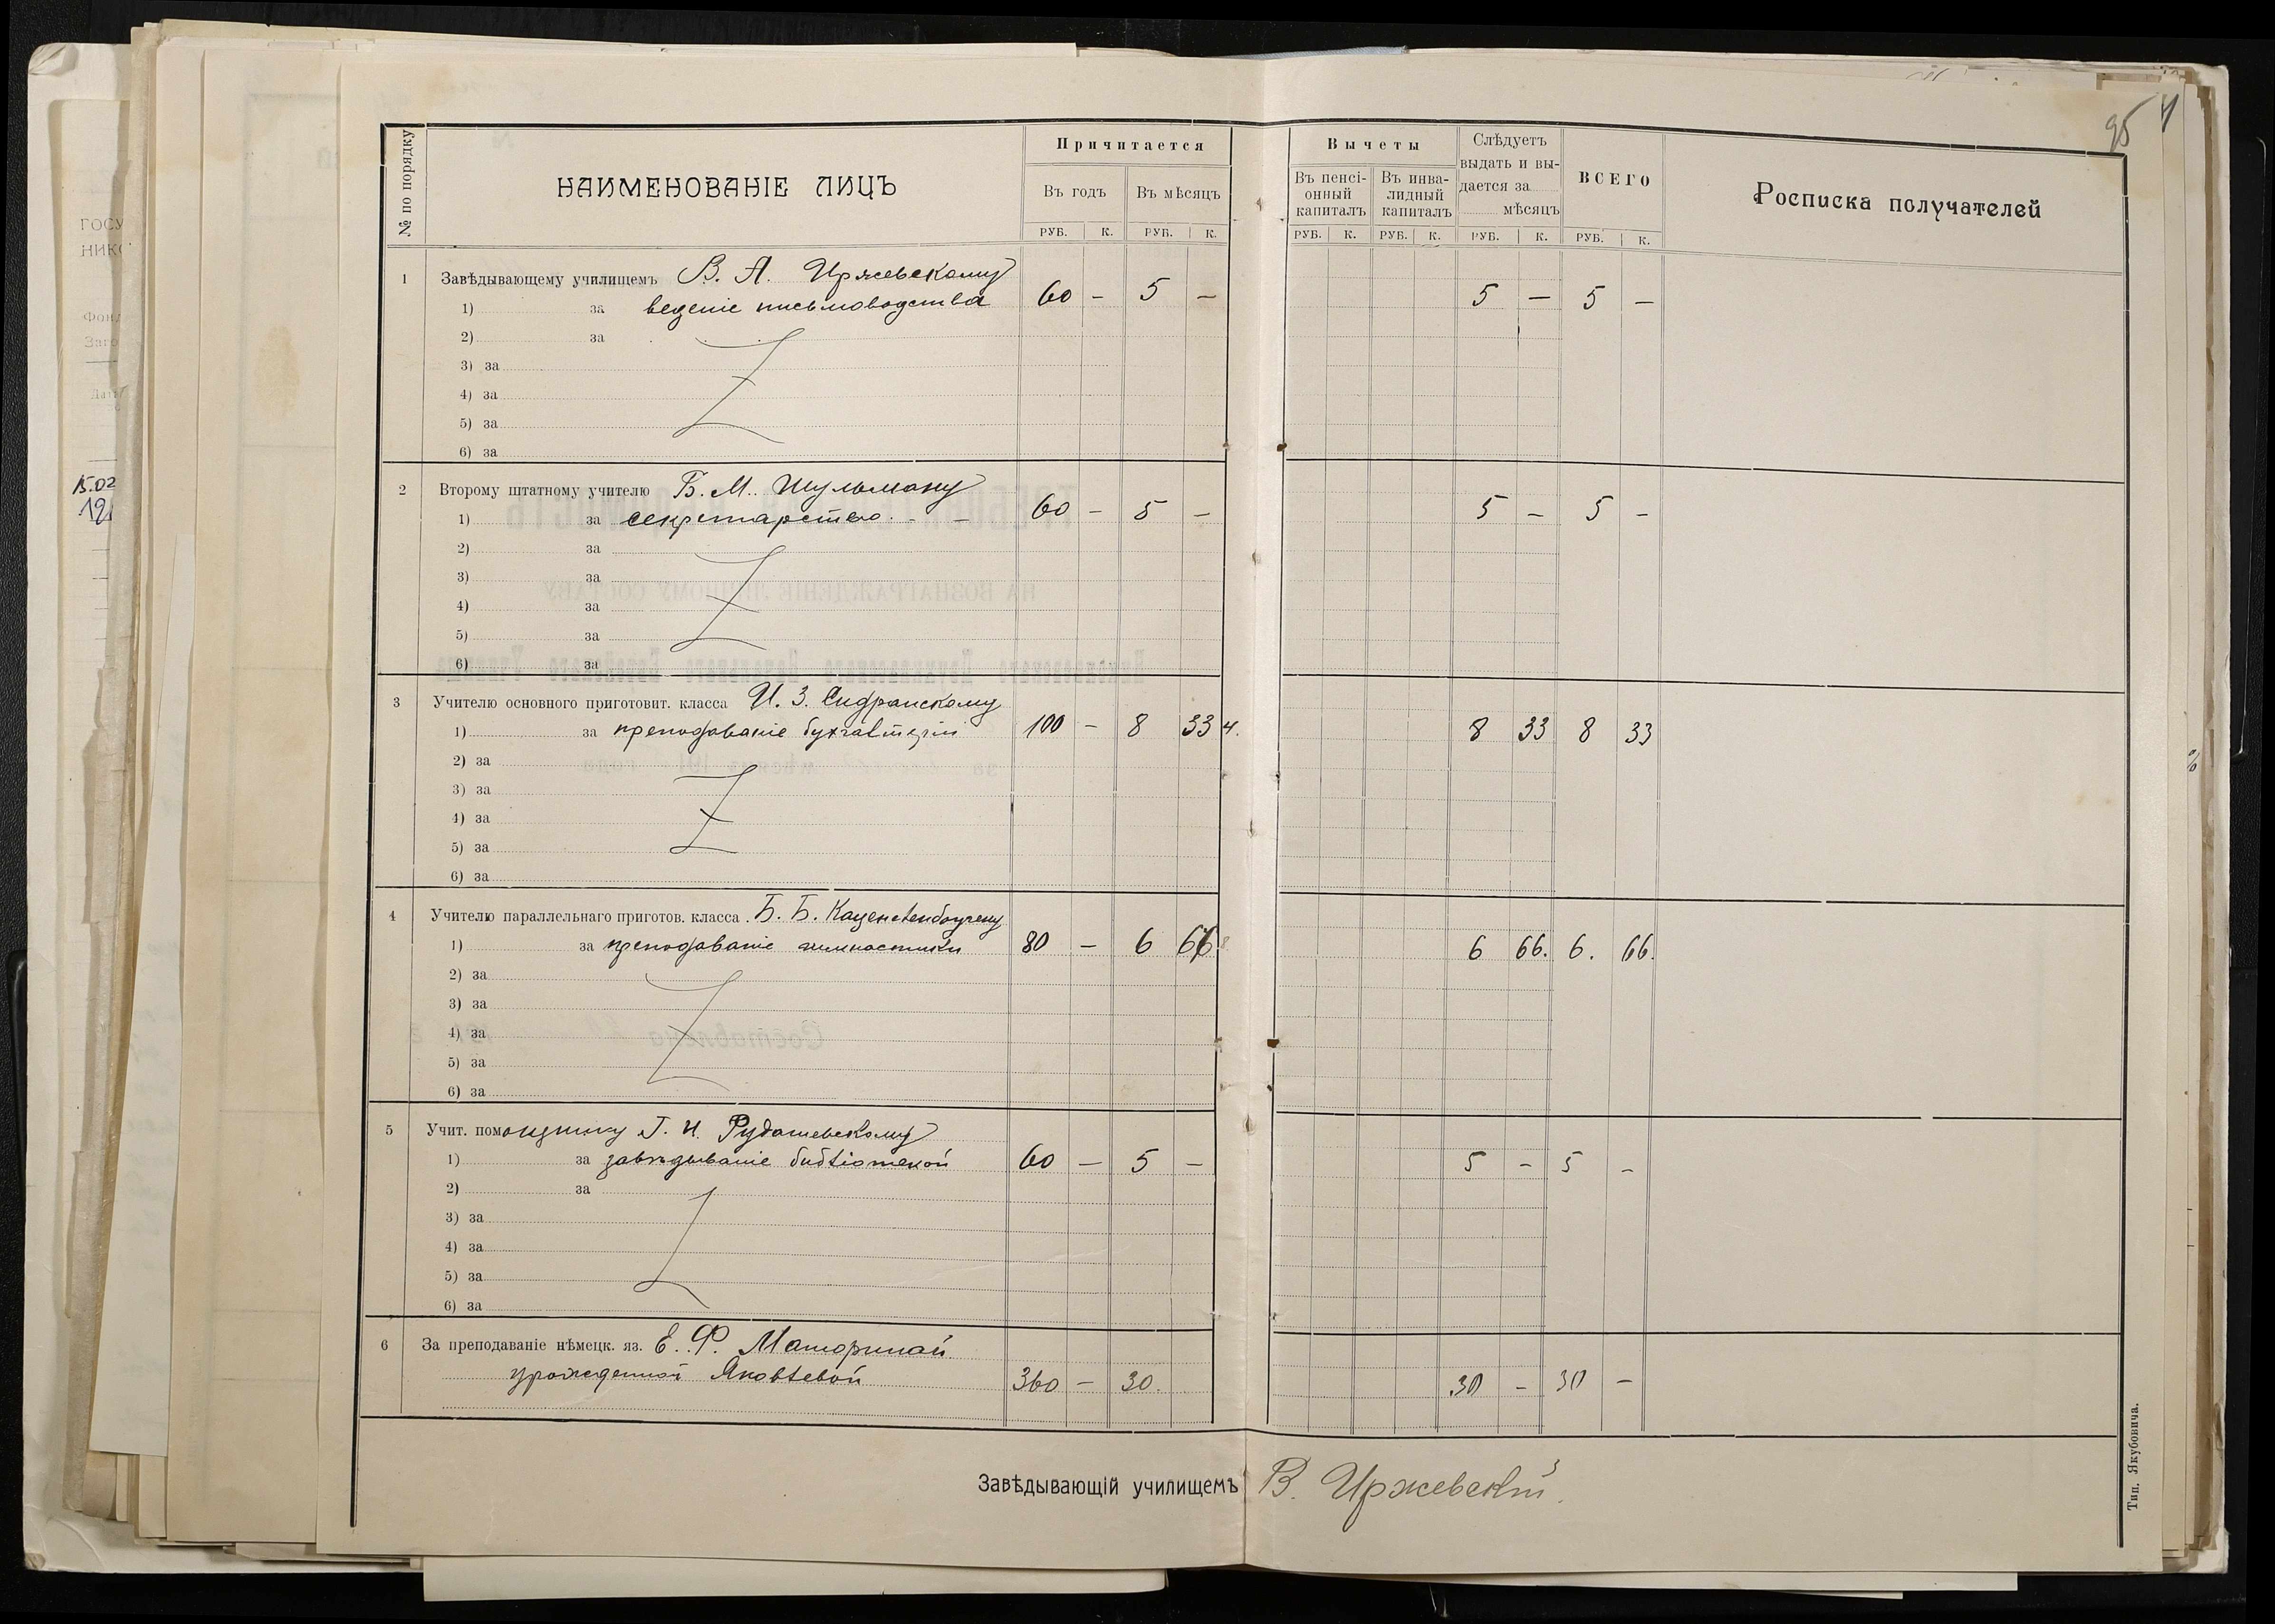 95
№ по порядку
НАИМЕНОВАНІЕ ЛИЦЪ
Причитается
Въ годъ Въ мѣсяцъ
РУБ. К. РУБ. К.
Вычеты
Въ пенсі-онный капиталъ
Въ инва-лидный капиталъ
РУБ. К. РУБ. К.
Слѣдуетъ
выдать и вы-
дается за
мѣсяцъ
РУБ. К.
ВСЕГО
РУБ. К.
Росписка получателей
1 Завѣдывающему училищемъ В. А. Иржевскому
1) за веденіе письмоводства 60 – 5 – 5 – 5 –
2) за
3) за
4) за
5) за
6) за
2 Второму штатному учителю Б. М. Шульману
1) за секретарство 60 – 5 – 5 – 5 –
2) за
3) за
4) за
5) за
6) за
3 Учителю основного приготовит. класса И. З.
1) за преподаваніе бухгалтеріи 100 – 8 33 8 33 8 33
2) за
3) за
4) за
5) за
6) за
4 Учителю параллельнаго приготов. класса Б. Б.
1) за преподаваніе гимнастики 80 – 6 66 6 66. 6. 66.
2) за
3) за
4) за
5) за
6) за
5 Учит. помощнику Г. И. Рудашевскому
1) за завѣдываніе библіотекой 60 – 5 – 5 – 5 –
2) за
3) за
4) за
5) за
6) за
6 За преподаваніе нѣмецк. яз. Е. Ф. Маториной
урожденной Яковлевой 360 – 30. 30 – 30 –
Завѣдывающій училищемъ В. Иржевскій
Тип. Якубовича.
ГОСУ
НИКО
15.02